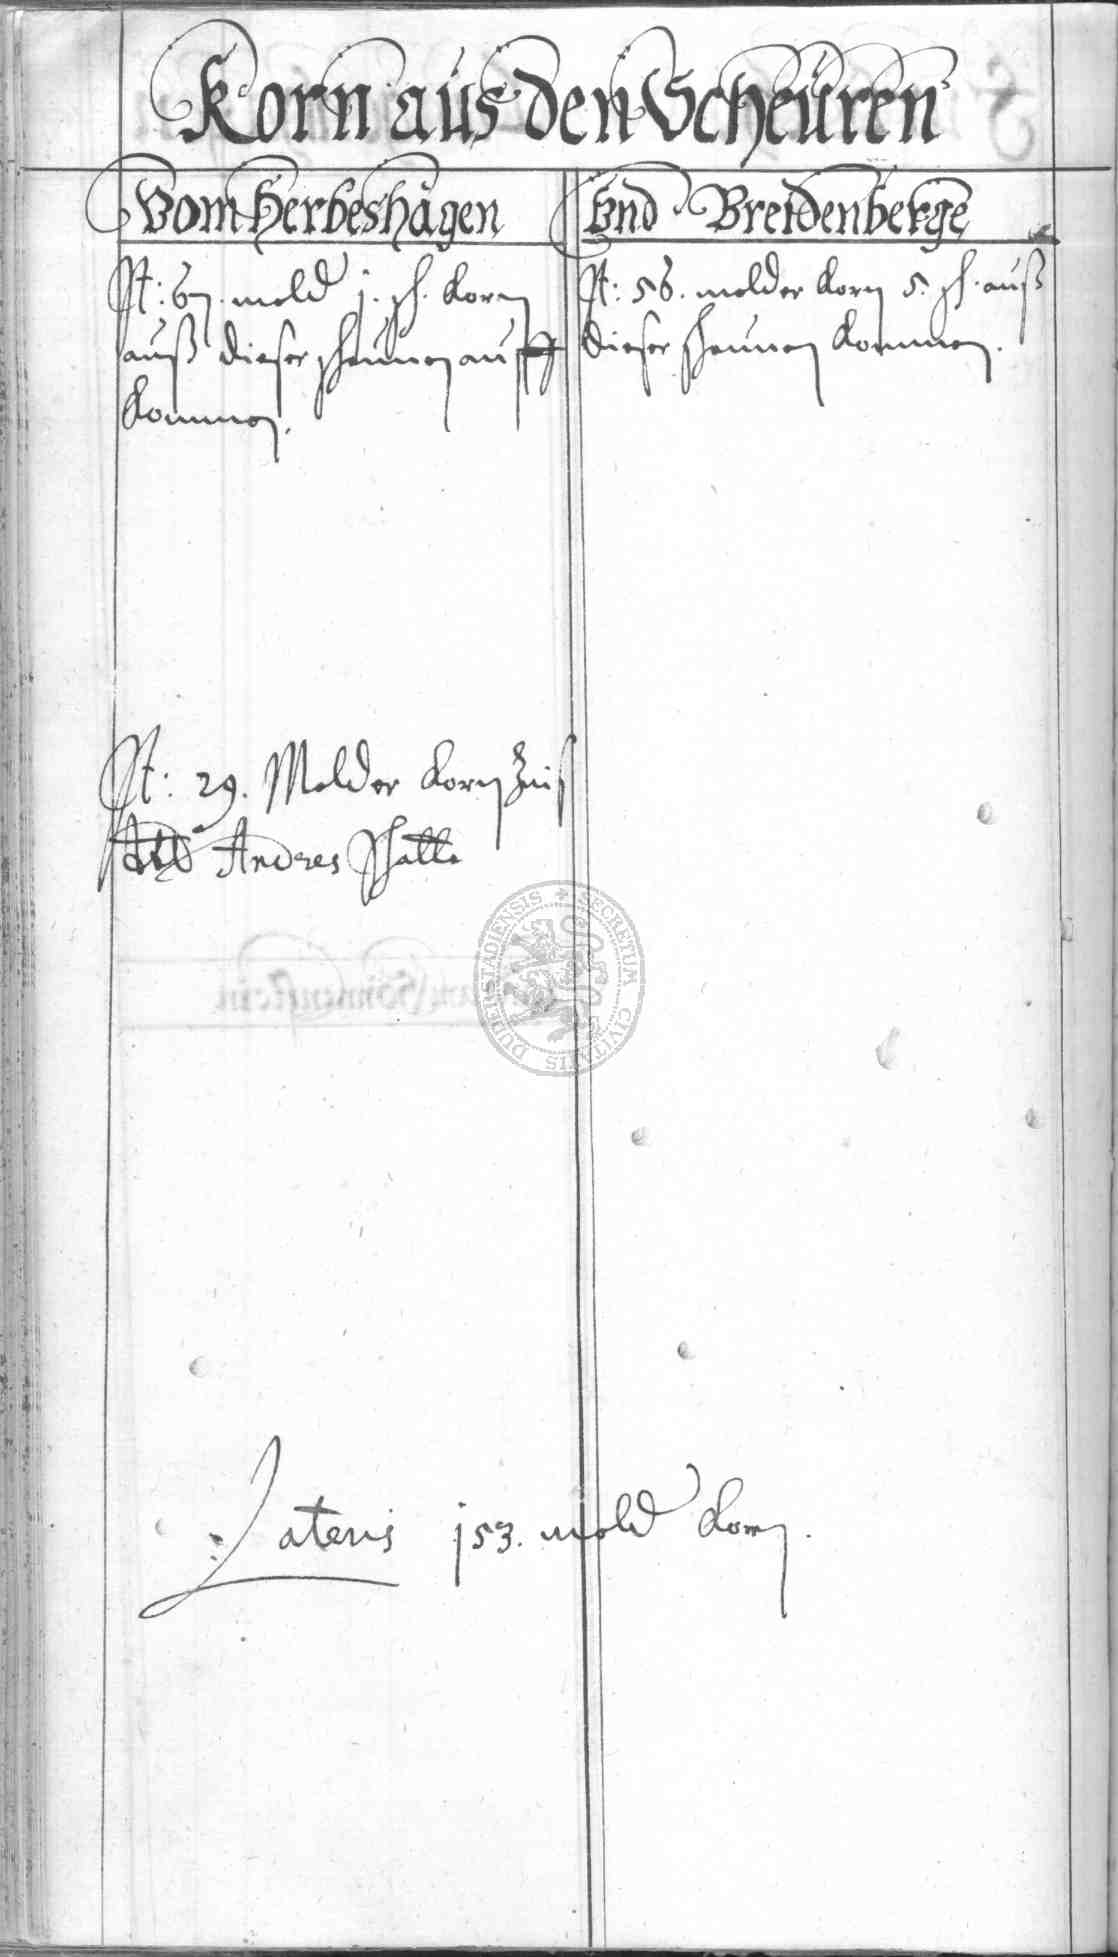 Korn aus den Scheuren
Vom Herbeshagen
Vnd Breidenberge
It: 67. mold j. sch. korn
auß dieser scheunen auff
kommen.
It: 56. molder korn 5. sch. auß
dieser scheunen kommen.
It: 29. Molder korn Zinß
Andres Schatte
SECRETUM CIVITATIS DUDERSTADIENSIS
Lateris j53. mold korn.